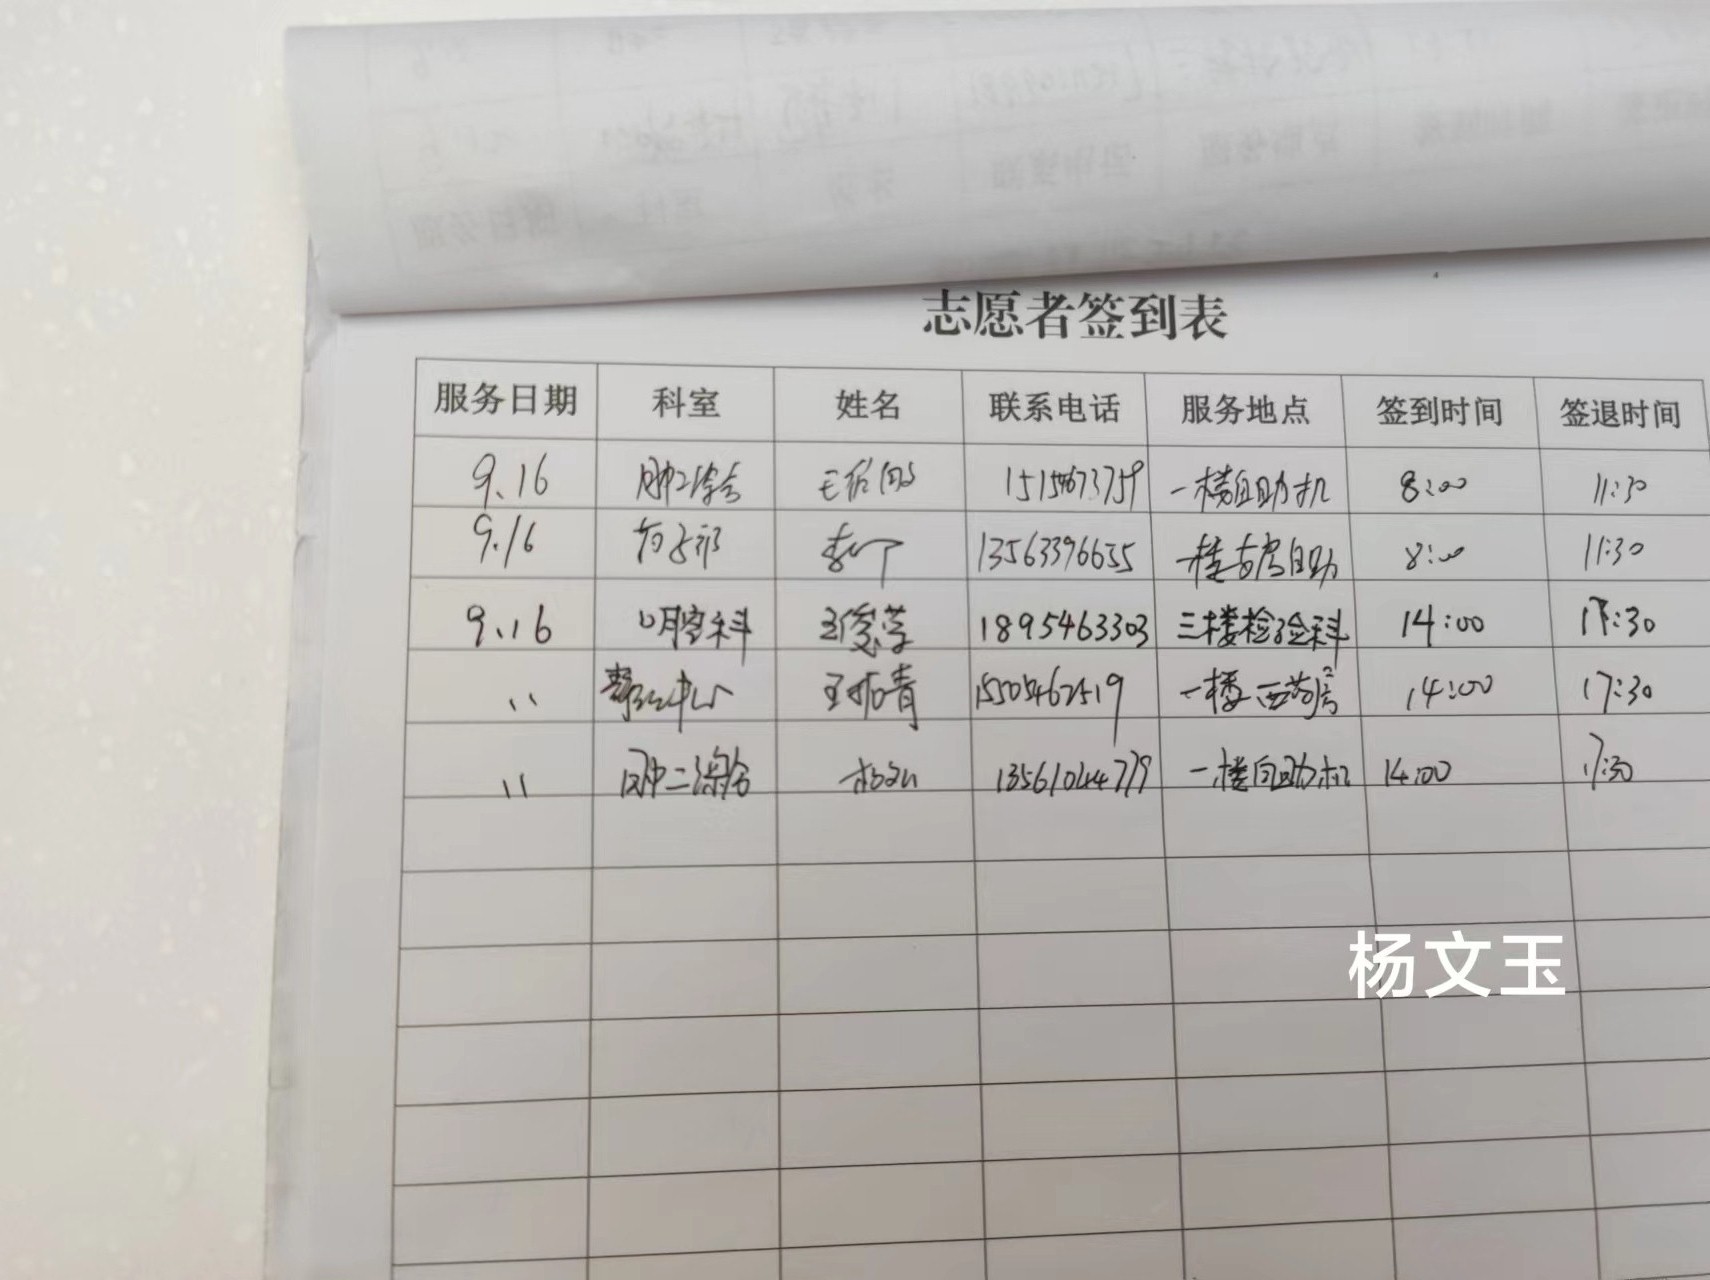 志愿者签到表
服务日期 科室 姓名 联系电话 服务地点 签到时间 签退时间
9.16 肿二综合 15154673759 一楼自助机 8:00 11:30
9.16 13563396655 一楼 自助 8:00 11:30
9.16 口腔科 1895463303 三楼检验科 14:00 17:30
〃 中心 15505462519 一楼西药房 14:00 17:30
〃 肿二综合 13561044779 一楼自助机 14:00 17:30
杨文玉